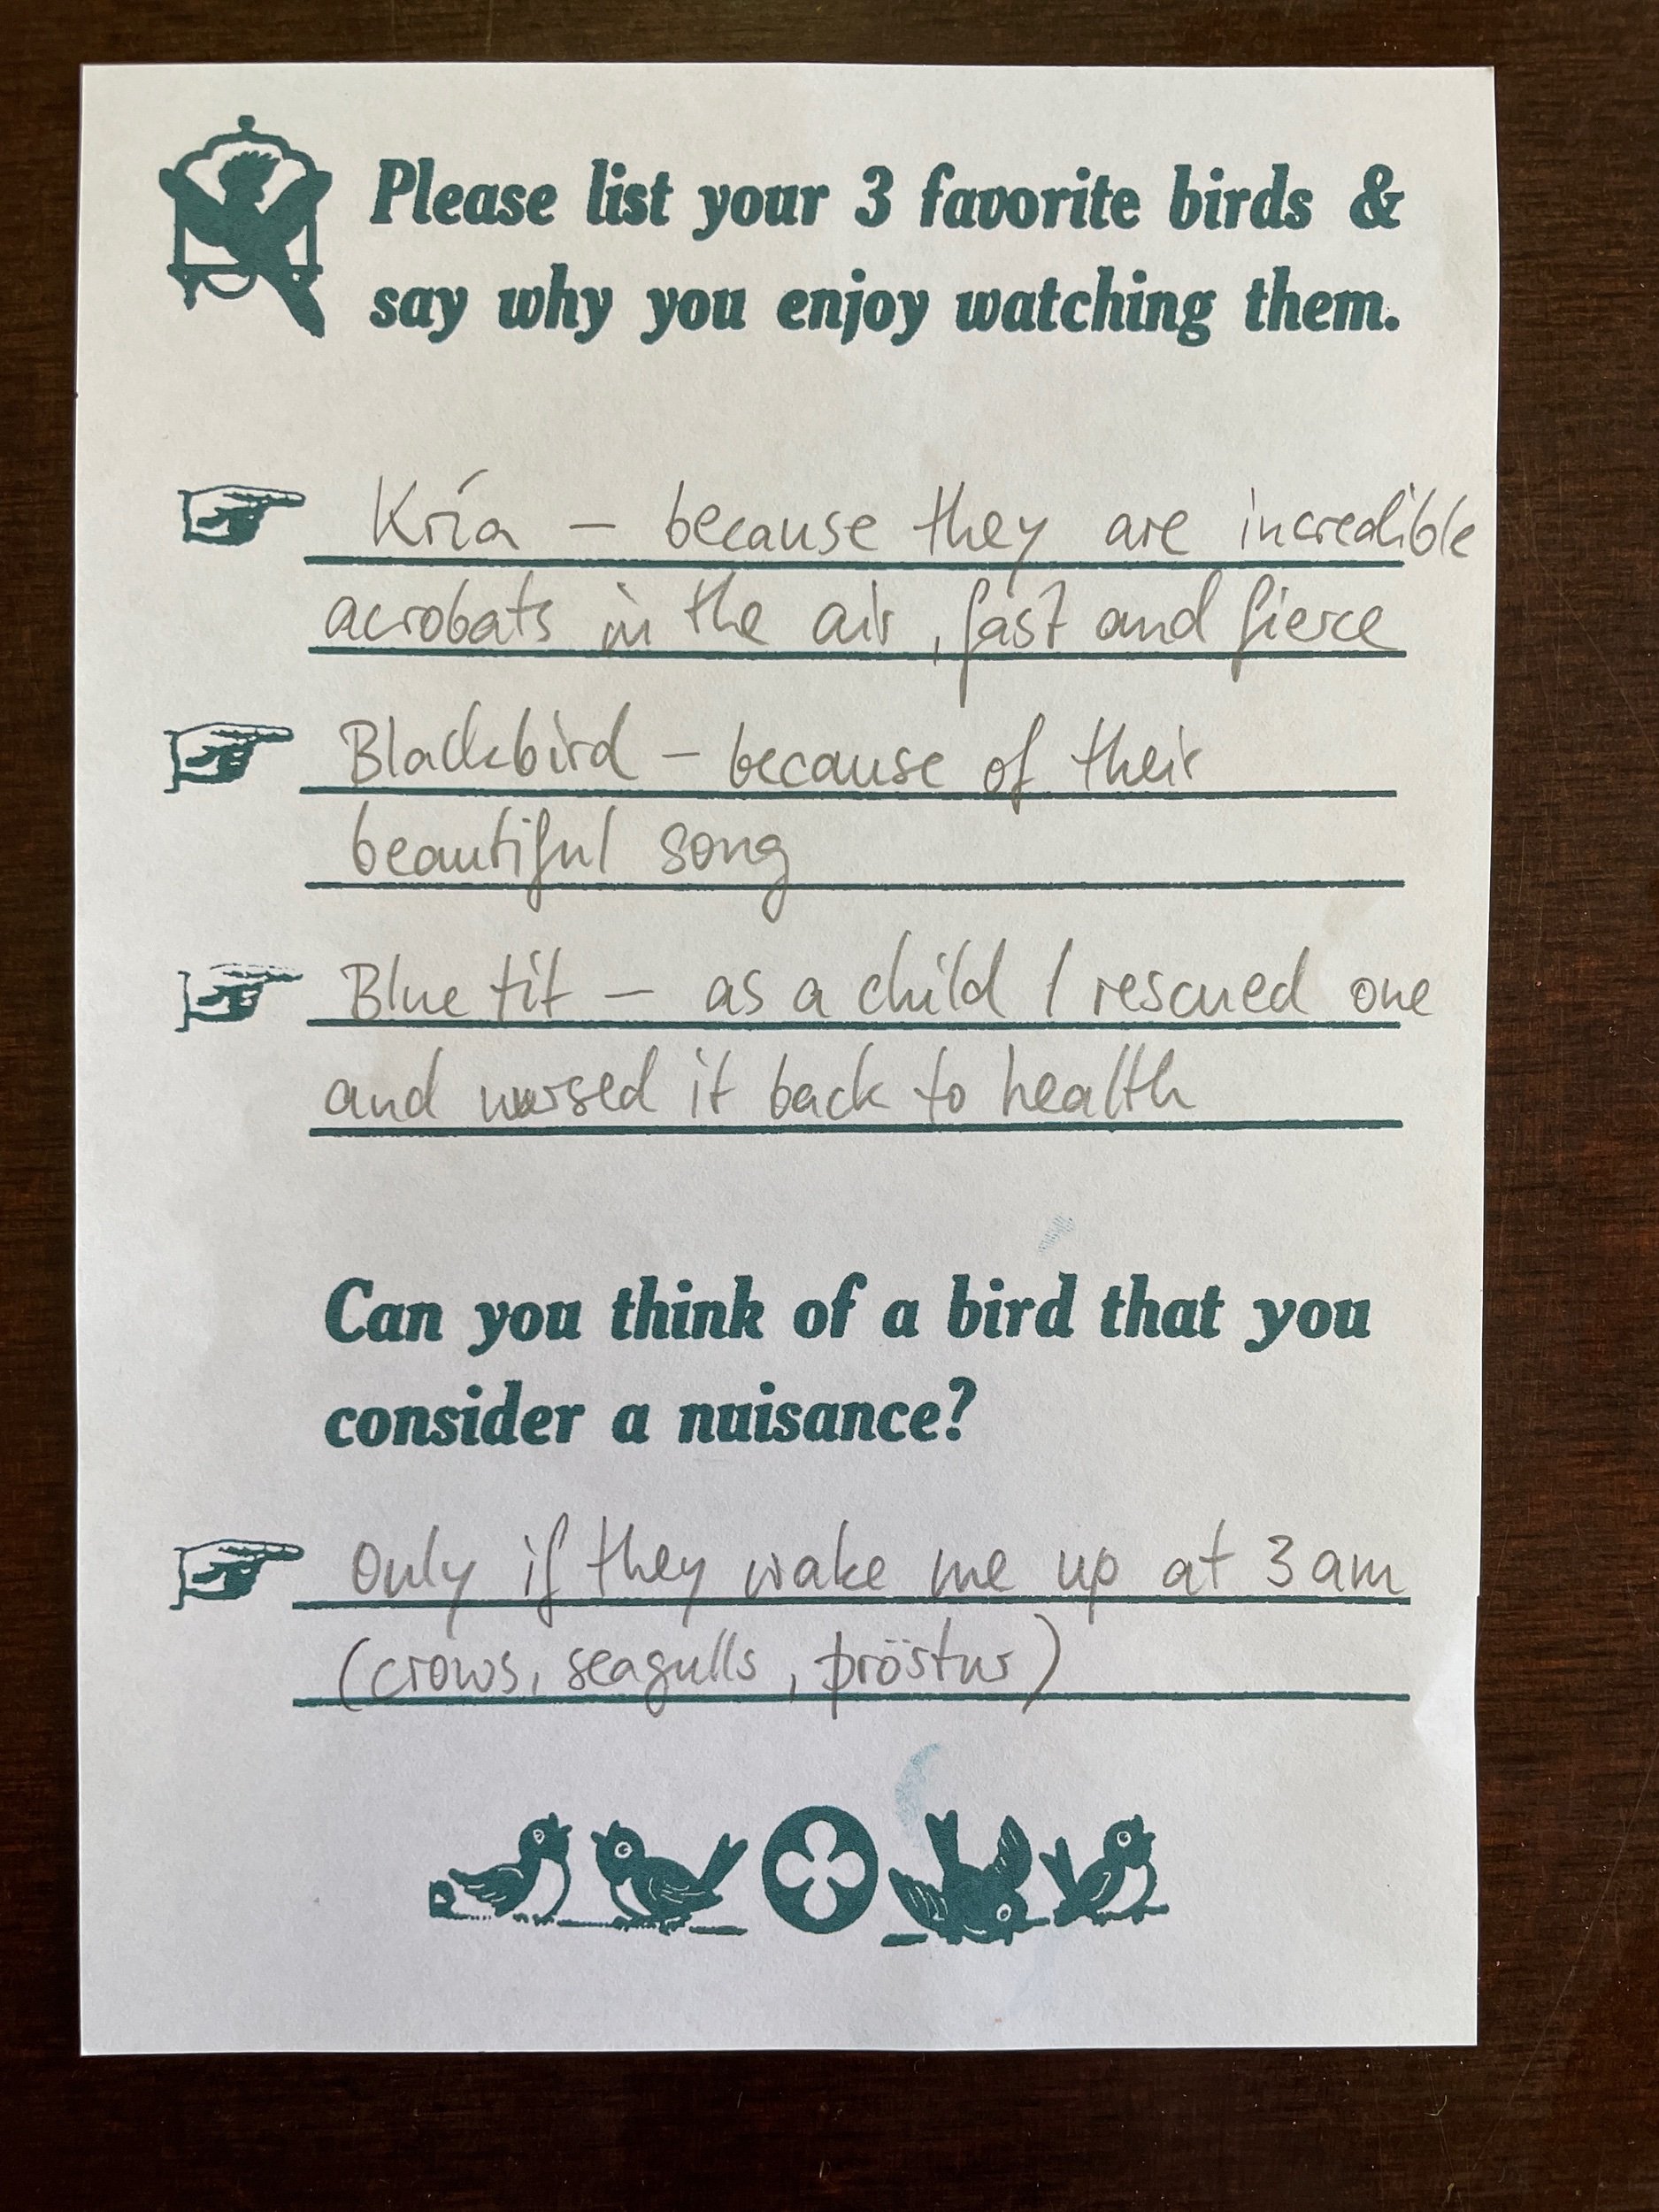 Please list your 3 favorite birds &
say why you enjoy watching them.
Kría – because they are incredible
acrobats in the air, fast and fierce
Blackbird – because of their
beautiful song
Blue tit – as a child I rescued one
and nursed it back to health
Can you think of a bird that you
consider a nuisance?
Only if they wake me up at 3 am
(crows, seagulls, þröstur)